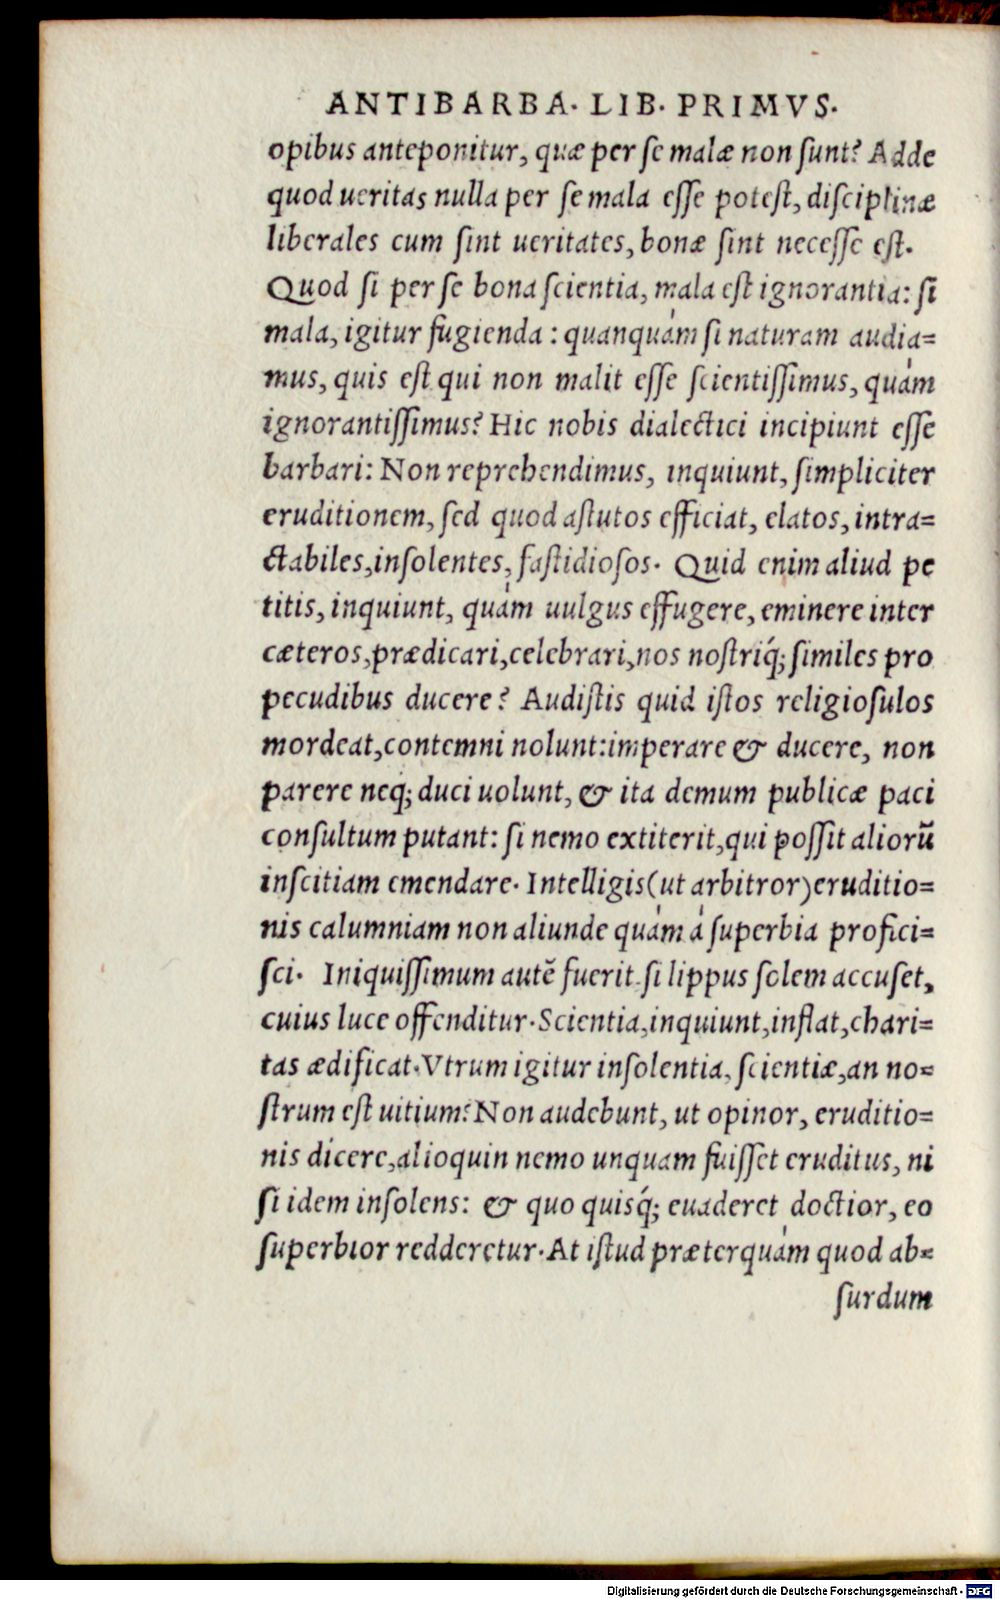 ANTIBARBA. LIB. PRIMVS.
opibus anteponitur, quæ per se malæ non sunt? Adde
quod ueritas nulla per se mala esse potest, disciplinæ
liberales cum sint ueritates, bonæ sint necesse est.
Quod si per se bona scientia, mala est ignorantia: si
mala, igitur fugienda: quanquàm si naturam audia=
mus, quis est qui non malit esse scientissimus, quàm
ignorantissimus? Hic nobis dialectici incipiunt esse
barbari: Non reprehendimus, inquiunt, simpliciter
eruditionem, sed quod astutos efficiat, elatos, intra=
ctabiles, insolentes, fastidiosos. Quid enim aliud pe
titis, inquiunt, quàm uulgus effugere, eminere inter
cæteros, prædicari, celebrari, nos nostriq́; similes pro
pecudibus ducere? Audistis quid istos religiosulos
mordeat, contemni nolunt: imperare & ducere, non
parere neq; duci uolunt, & ita demum publicæ paci
consultum putant: si nemo extiterit, qui possit aliorũ
inscitiam emendare. Intelligis (ut arbitror) eruditio=
nis calumniam non aliunde quàm à superbia profici=
sci. Iniquissimum autẽ fuerit si lippus solem accuset,
cuius luce offenditur. Scientia, inquiunt, inflat, chari=
tas ædificat. Vtrum igitur insolentia, scientiæ, an no=
strum est uitium? Non audebunt, ut opinor, eruditio=
nis dicere, alioquin nemo unquam fuisset eruditus, ni
si idem insolens: & quo quisq́; euaderet doctior, eo
superbior redderetur. At istud præterquàm quod ab=
surdum
Digitalisierung gefördert durch die Deutsche Forschungsgemeinschaft - DFG